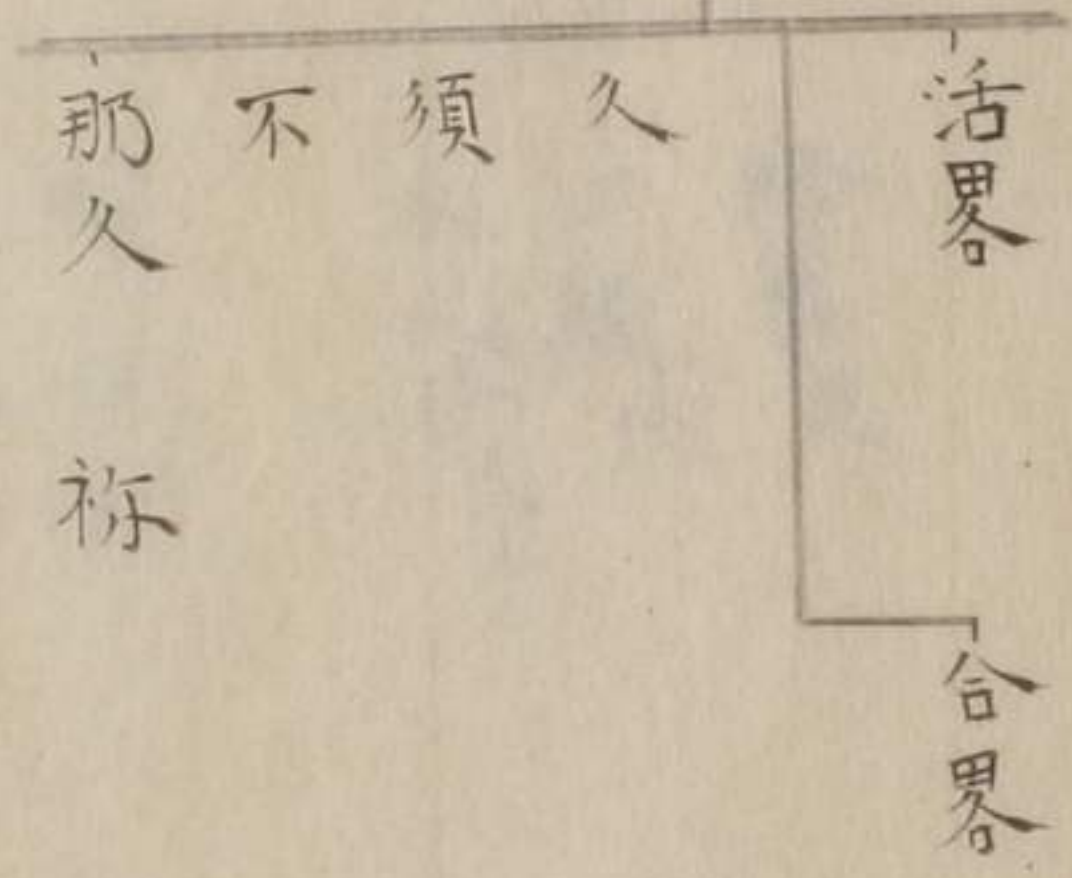 活畧
合畧
久
須
不
那久
祢